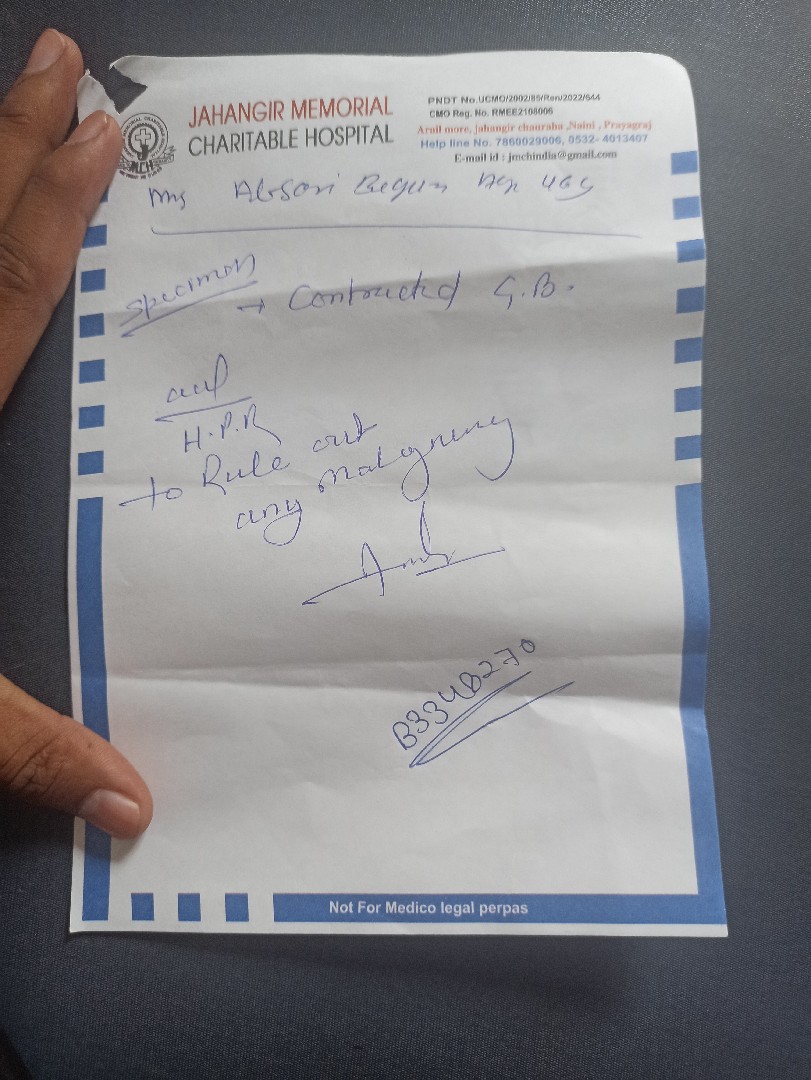 JAHANGIR MEMORIAL
CHARITABLE HOSPITAL
PNDT No.UCMO/2002/85/Ren/2022/644
CMO Reg. No. RMEE2108006
Arail more, jahangir chauraha ,Naini , Prayagraj
Help line No. 7860029006, 0532- 4013407
E-mail id : jmchindia@gmail.com
MCH
Mrs Begum Age
Specimen
→ Contracted G.B.
H.P.R
to Rule out
any malignency
B334B270
Not For Medico legal perpas